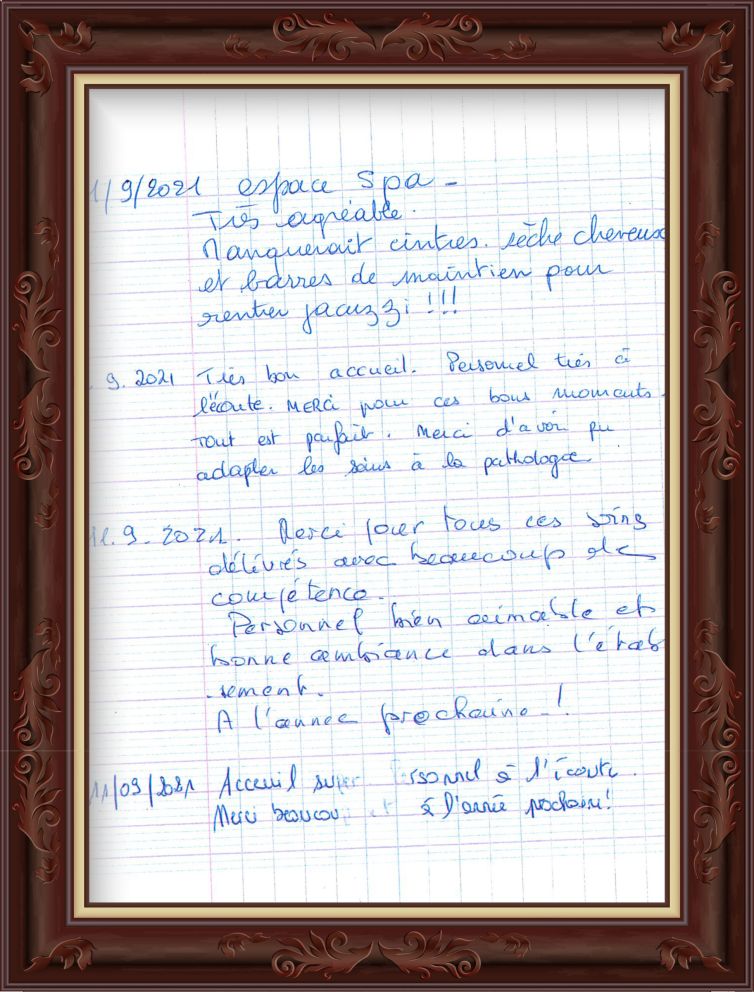 1/9/2021 espace Spa -
Très agréable.
Manquerait cintres. sèche cheveux
et barres de maintien pour
rentrer jacuzzi !!!
. 9. 2021 Très bon accueil. Personnel très à
l'écoute. MERCi pour ces bons moments.
Tout est parfait. Merci d'avoir pu
adapter les soins à la pathologie
11. 9. 2021. Merci pour tous ces soins
délivrés avec beaucoup de
compétence.
Personnel bien aimable et
bonne ambiance dans l'étab
sement.
A l'année prochaine !
11/09/2021 Acceuil super ersonnel à l'écoute.
Merci beaucou et à l'année prochaine!